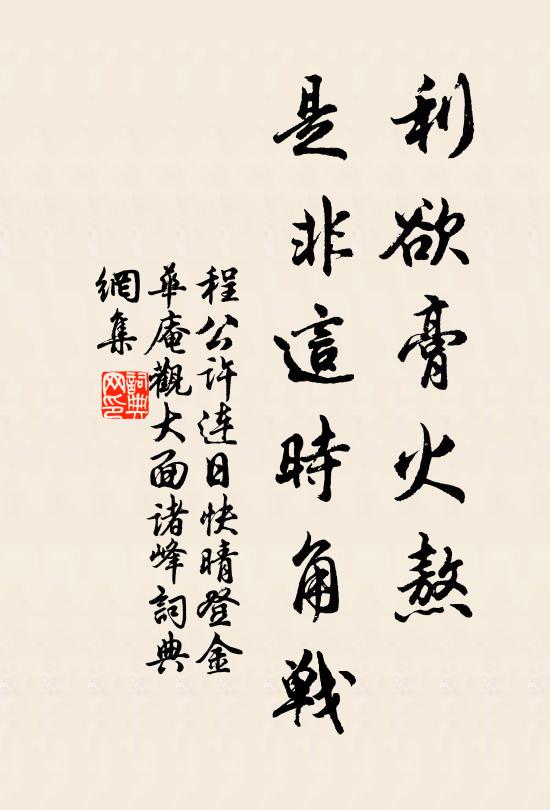 利欲膏火熬
是非這時角戰
程公许连日快晴登金
華庵觀大面诸峰詞典
網集
詞典
网印